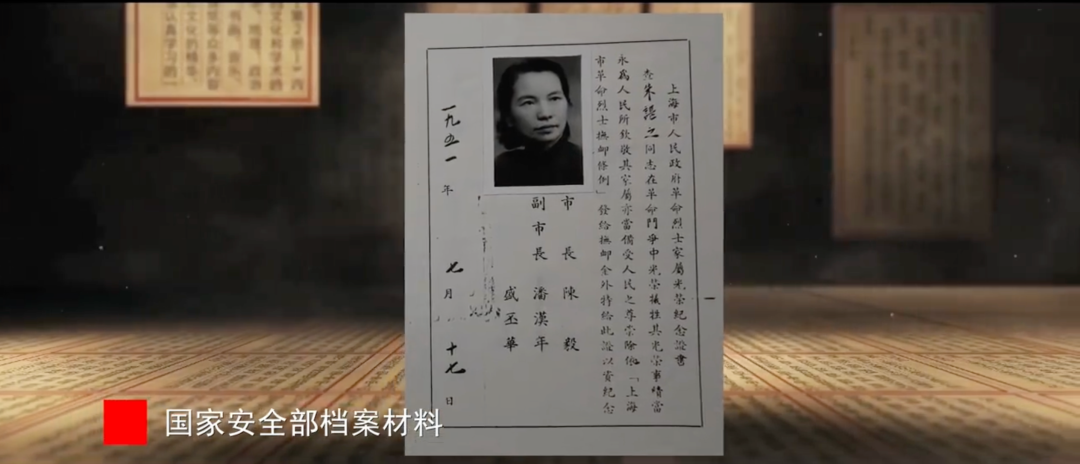 文化的精华
认真学习的一
上海市人民政府革命烈士家屬光榮紀念證書
查朱堪之同志在革命鬥爭中光榮犧牲其光榮事蹟當
永為人民所欽敬其家屬亦當備受人民之尊崇除依「上海
市革命烈士撫卹條例」發給撫卹金外特給此證以資紀念
市長 陳毅
副市長 潘漢年
盛丕華
一九五一年七月十七日
国家安全部档案材料